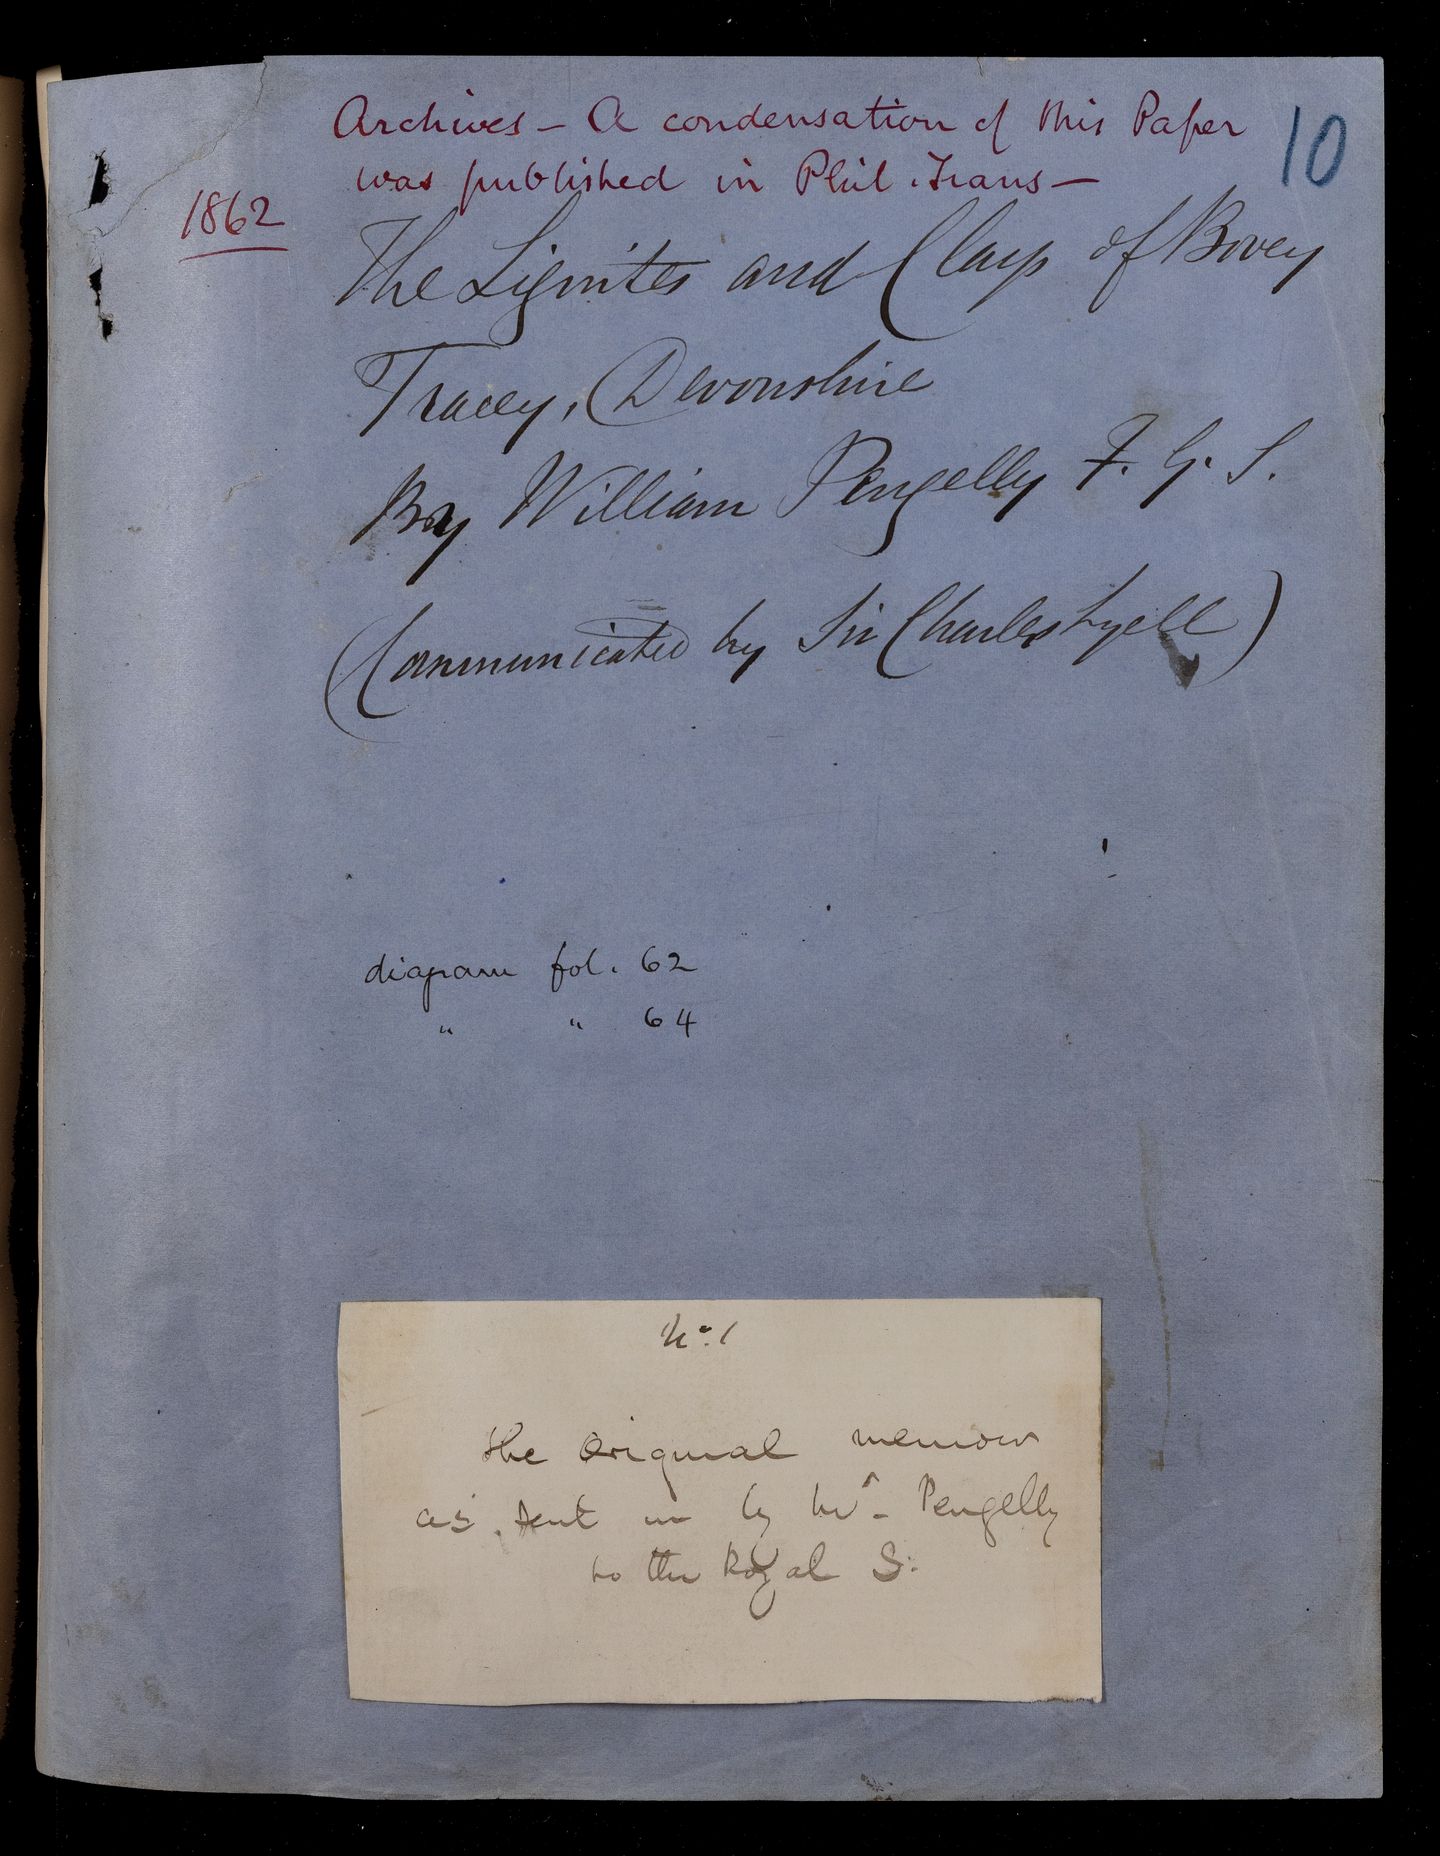 Archives - A condensation of this Paper
10
was published in Phil. Trans -
1862
The Lignites and Clays of Bovey
Tracey, Devonshire
By William Pengelly F. G. S.
(Communicated by Sir Charles Lyell)
diagram fol. 62
" " 64
No. 1
the original memoir
as sent in by Mr. Pengelly
to the Royal S: